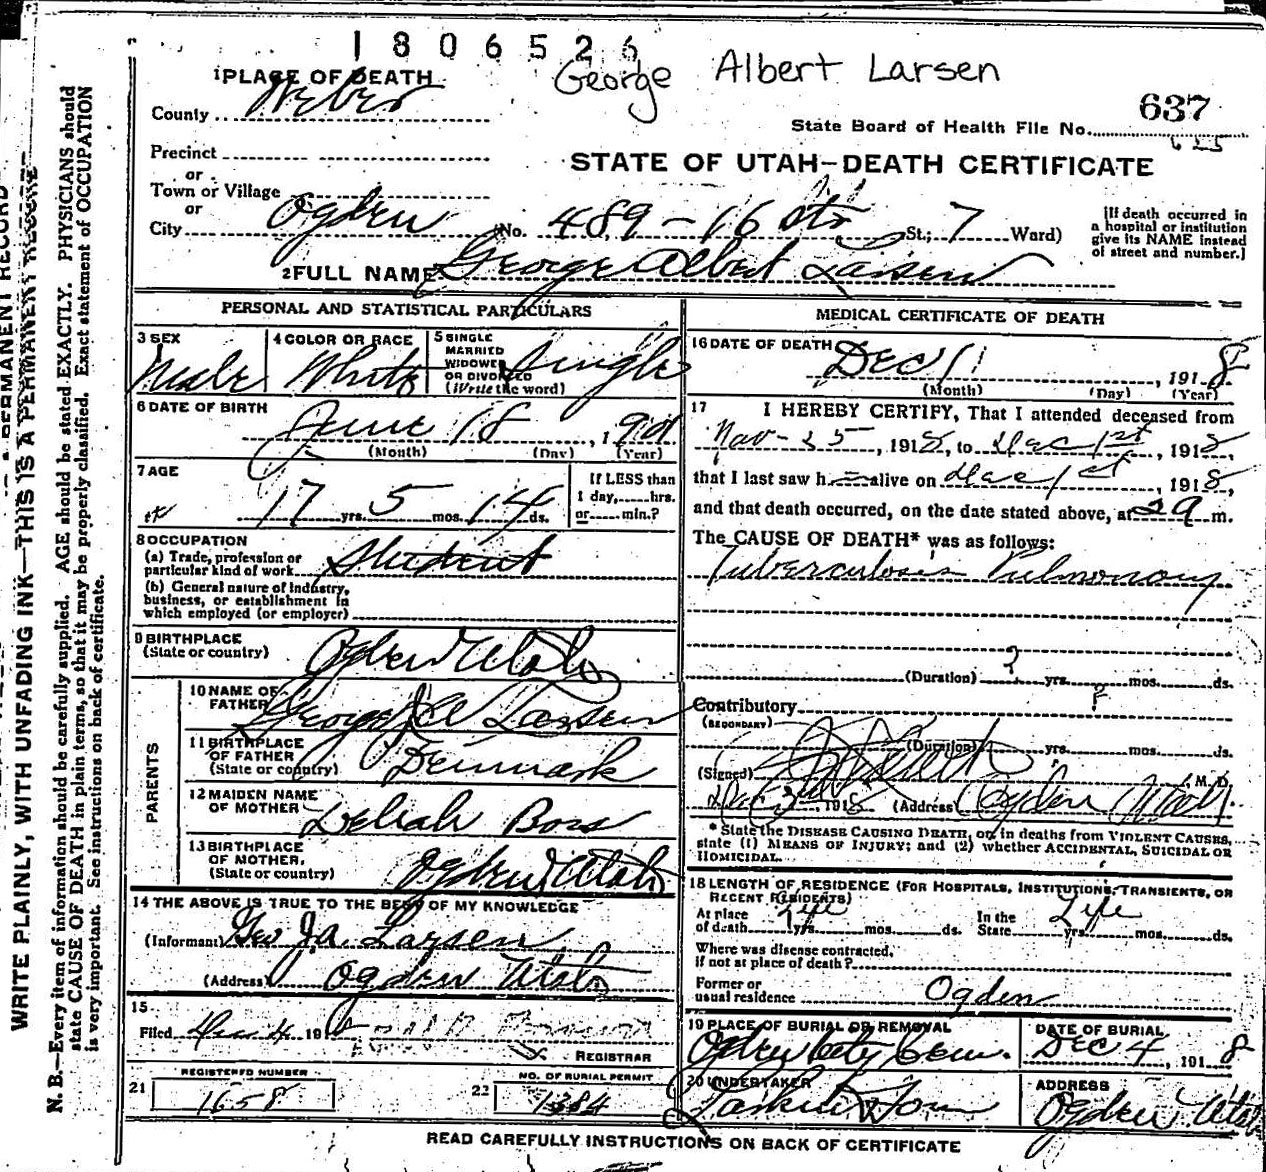 1806526
George Albert Larsen
1 PLACE OF DEATH
County Weber
637
State Board of Health File No.
625
Precinct
or
STATE OF UTAH—DEATH CERTIFICATE
Town or Village
or
City Ogden No. 489-16 Str St.; 7 Ward)
[If death occurred in a hospital or institution give its NAME instead of street and number.]
2 FULL NAME George Albert Larsen
PERSONAL AND STATISTICAL PARTICULARS
3 SEX Male
4 COLOR OR RACE White
5 SINGLE MARRIED WIDOWED OR DIVORCED (Write the word) Single
6 DATE OF BIRTH
June 18, 190
(Month) (Day) (Year)
7 AGE
17 yrs. 5 mos. 14 ds.
If LESS than 1 day, hrs. or min.?
8 OCCUPATION
(a) Trade, profession or particular kind of work Student
(b) General nature of industry, business, or establishment in which employed (or employer)
9 BIRTHPLACE
(State or country) Ogden Utah
PARENTS
10 NAME OF FATHER George J A Larsen
11 BIRTHPLACE OF FATHER (State or country) Denmark
12 MAIDEN NAME OF MOTHER Boss
13 BIRTHPLACE OF MOTHER, (State or country) Ogden Utah
14 THE ABOVE IS TRUE TO THE BEST OF MY KNOWLEDGE
(Informant) Geo J A Larsen
(Address) Ogden Utah
15
Filed Dec 4 191
REGISTRAR
21 REGISTERED NUMBER 1658
22 NO. OF BURIAL PERMIT 1384
MEDICAL CERTIFICATE OF DEATH
16 DATE OF DEATH Dec 1, 1918
(Month) (Day) (Year)
17 I HEREBY CERTIFY, That I attended deceased from
Nov-25, 1918, to Dec 1st, 1918,
that I last saw h alive on Dec 1st, 1918,
and that death occurred, on the date stated above, at m.
The CAUSE OF DEATH* was as follows:
Tuberculosis Pulmonary
(Duration) ? yrs. mos. ds.
Contributory ?
(SECONDARY)
(Duration) yrs. mos. ds.
(Signed) , M. D.
1918 (Address) Ogden Utah.
* State the DISEASE CAUSING DEATH, or, in deaths from VIOLENT CAUSES,
state (1) MEANS OF INJURY; and (2) whether ACCIDENTAL, SUICIDAL OR
HOMICIDAL.
18 LENGTH OF RESIDENCE (FOR HOSPITALS, INSTITUTIONS, TRANSIENTS, OR
RECENT RESIDENTS)
At place of death Life yrs. mos. ds. In the State Life yrs. mos. ds.
Where was disease contracted,
if not at place of death?
Former or
usual residence Ogden
19 PLACE OF BURIAL OR REMOVAL
Ogden City Cem.
DATE OF BURIAL
Dec 4, 1918
20 UNDERTAKER
Larkin
ADDRESS
Ogden Utah
READ CAREFULLY INSTRUCTIONS ON BACK OF CERTIFICATE
WRITE PLAINLY, WITH UNFADING INK—THIS IS A PERMANENT RECORD
N. B.—Every item of information should be carefully supplied. AGE should be stated EXACTLY. PHYSICIANS should
state CAUSE OF DEATH in plain terms, so that it may be properly classified. Exact statement of OCCUPATION
is very important. See instructions on back of certificate.